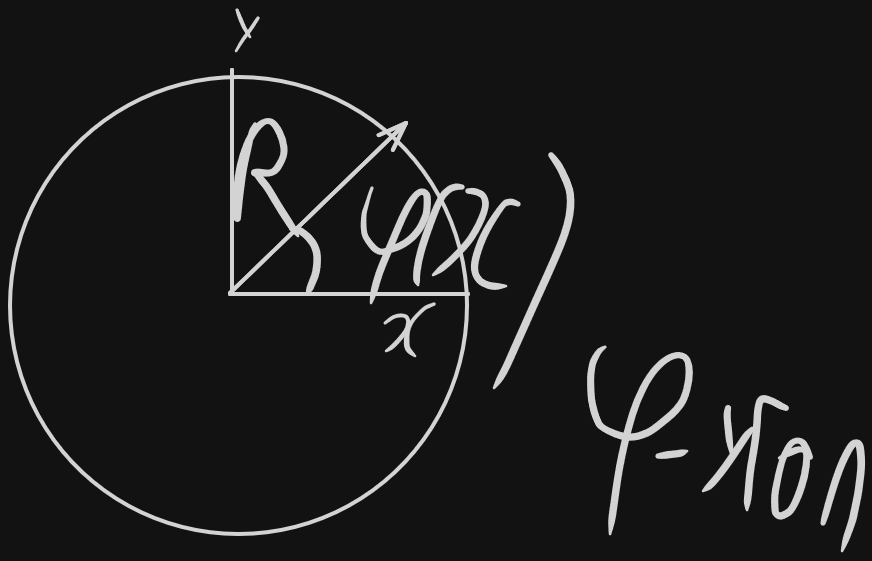 y
R
φ(x)
x
φ - угол